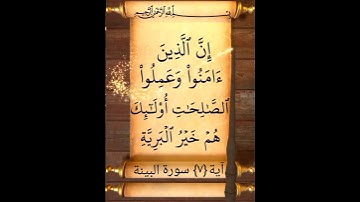 بِسْمِ ٱللَّهِ ٱلرَّحْمَٰنِ ٱلرَّحِيمِ
إِنَّ ٱلَّذِينَ
ءَامَنُوا۟ وَعَمِلُوا۟
ٱلصَّٰلِحَٰتِ أُو۟لَٰٓئِكَ
هُمْ خَيْرُ ٱلْبَرِيَّةِ
آية {٧} سورة البينة